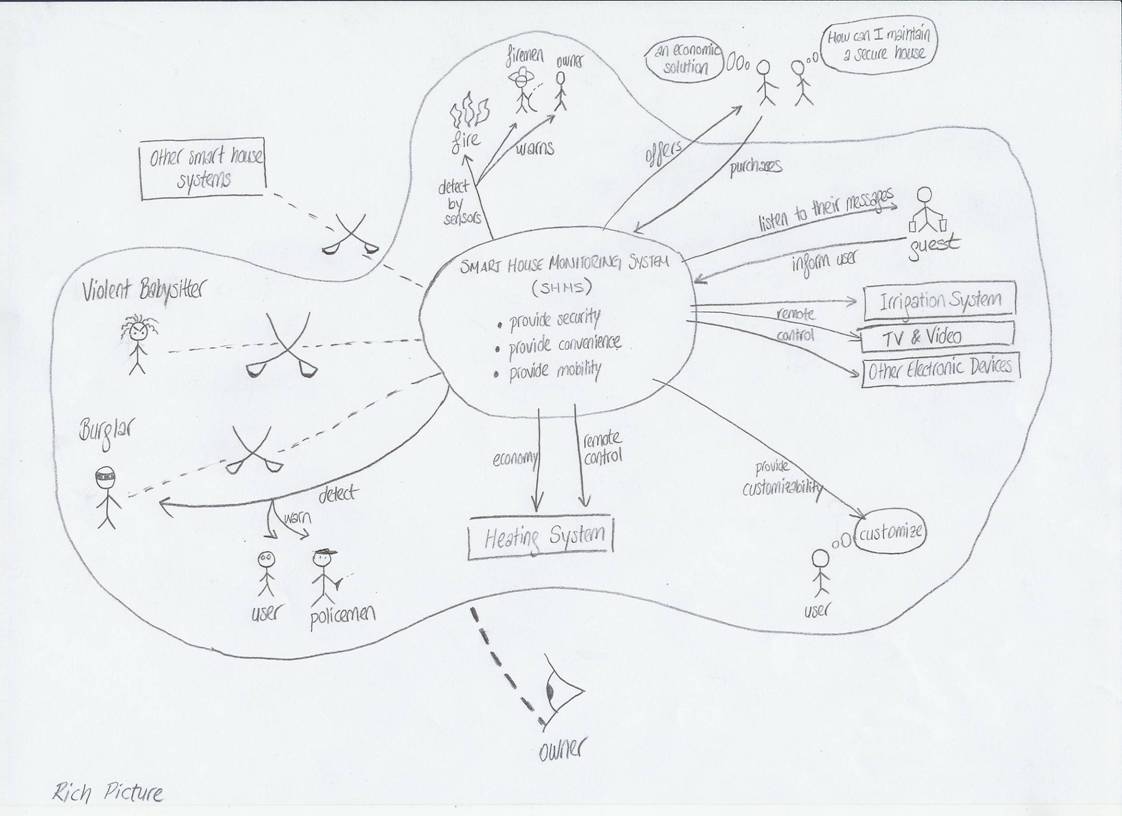 firemen
owner
an economic
solution
How can I maintain
a secure house
fire
warns
offers
purchases
Other smart house
systems
detect
by
sensors
listen to their messages
guest
inform user
SMART HOUSE MONITORING SYSTEM
(SHMS)
• provide security
• provide convenience
• provide mobility
Violent Babysitter
Irrigation System
remote
control
TV & Video
Other Electronic Devices
Burglar
economy
remote
control
provide
customizability
detect
warn
Heating System
customize
user
policemen
user
owner
Rich Picture